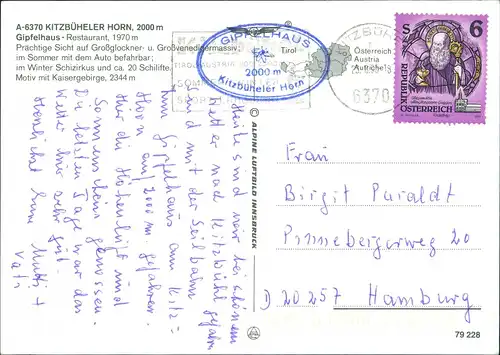 A-6370 KITZBÜHELER HORN, 2000 m
Gipfelhaus - Restaurant, 1970 m
Prächtige Sicht auf Großglockner- u. Großvenedigermassiv;
im Sommer mit dem Auto befahrbar;
im Winter Schizirkus und ca. 20 Schilifte.
Motiv mit Kaisergebirge, 2344 m
GIPFELHAUS
2000 m
Kitzbüheler Horn
Tirol
Österreich
Austria
Autriche
6370
S 6
REPUBLIK
ÖSTERREICH
Heute sind wir bei schönem
Wetter nach Kitzbühel gefahren
und mit der Seilbahn
zum Gipfelhaus am Kitz-
Horn auf 2000 m. gefahren.
Hier die Höhenluft und
Sonnenschein genossen.
Die letzten Tage war das
Wetter hier sehr gut.
Herzlichst Eure Mutti +
Vati
© ALPINE LUFTBILD INNSBRUCK
Frau
Birgit Paraldt
Pinnebergerweg 20
D 20257 Hamburg
79 228